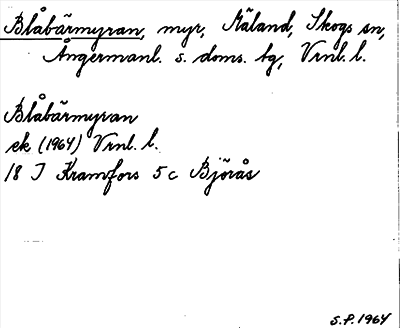 Blåbärmyran, myr, Mäland, Skogs sn,
Ångermanl. s. doms. tg, Vrnl. l.
Blåbärmyran
ek (1964) Vrnl. l.
18 I Kramfors 5 c Björås
S.P. 1964